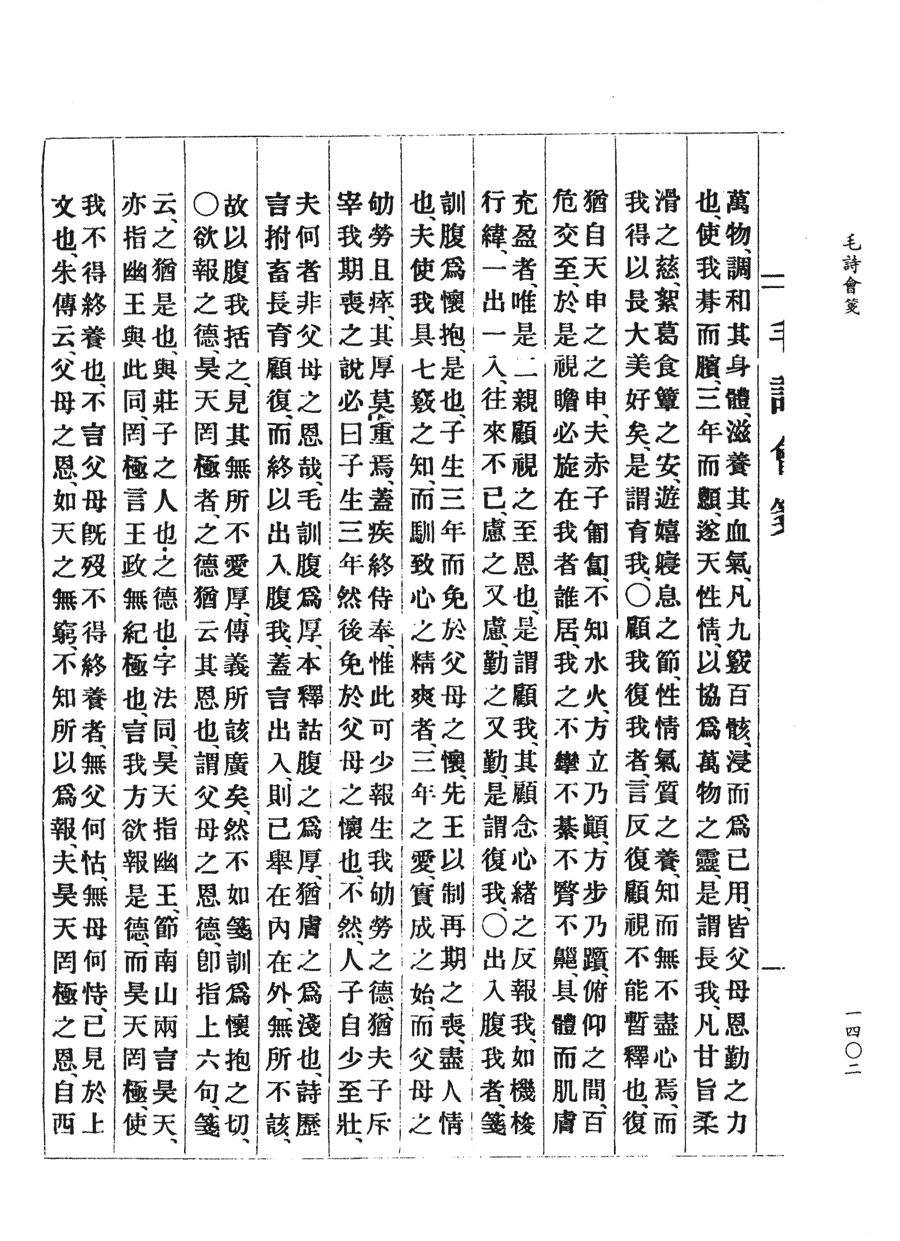 毛詩會箋
一四〇二
毛詩會箋
萬物、調和其身體、滋養其血氣、凡九竅百骸、浸而爲已用、皆父母恩勤之力
也、使我朞而臏、三年而顖、遂天性情、以協爲萬物之靈、是謂長我、凡甘旨柔
滑之慈、絮葛食簟之安、遊嬉寢息之節、性情氣質之養、知而無不盡心焉、而
我得以長大美好矣、是謂育我、〇顧我復我者、言反復顧視不能暫釋也、復
猶自天申之之申、夫赤子匍匐、不知水火、方立乃顚、方步乃躓、俯仰之間、百
危交至、於是視瞻必旋在我者誰居、我之不攣不綦不不、具體而肌膚
充盈者、唯是二親顧視之至恩也、是謂顧我、其顧念心緒之反報我、如機梭
行緯、一出一入、往來不已、慮之又慮、勤之又勤、是謂復我、〇出入腹我者、箋
訓腹爲懷抱、是也、子生三年而免於父母之懷、先王以制再期之喪、盡人情
也、夫使我具七竅之知、而馴致心之精爽者、三年之愛、實成之始、而父母之
劬勞且瘁、其厚莫重焉、蓋疾終侍奉、惟此可少報生我劬勞之德、猶夫子斥
宰我期喪之說必曰子生三年然後免於父母之懷也、不然、人子自少至壯、
夫何者非父母之恩哉、毛訓腹爲厚、本釋詁腹之爲厚、猶膚之爲淺也、詩歷
言拊畜長育顧復、而終以出入腹我、蓋言出入、則已舉在內在外、無所不該、
故以腹我括之、見其無所不愛厚、傳義所該廣矣、然不如箋訓爲懷抱之切、
〇欲報之德、昊天罔極者、之德猶云其恩也、謂父母之恩德、卽指上六句、箋
云、之猶是也、與莊子之人也、之德也、字法同、昊天指幽王、節南山兩言昊天、
亦指幽王與此同、罔極言王政無紀極也、言我方欲報是德、而昊天罔極、使
我不得終養也、不言父母旣歿不得終養者、無父何怙、無母何恃、已見於上
文也、朱傳云、父母之恩、如天之無窮、不知所以爲報、夫昊天罔極之恩、自西